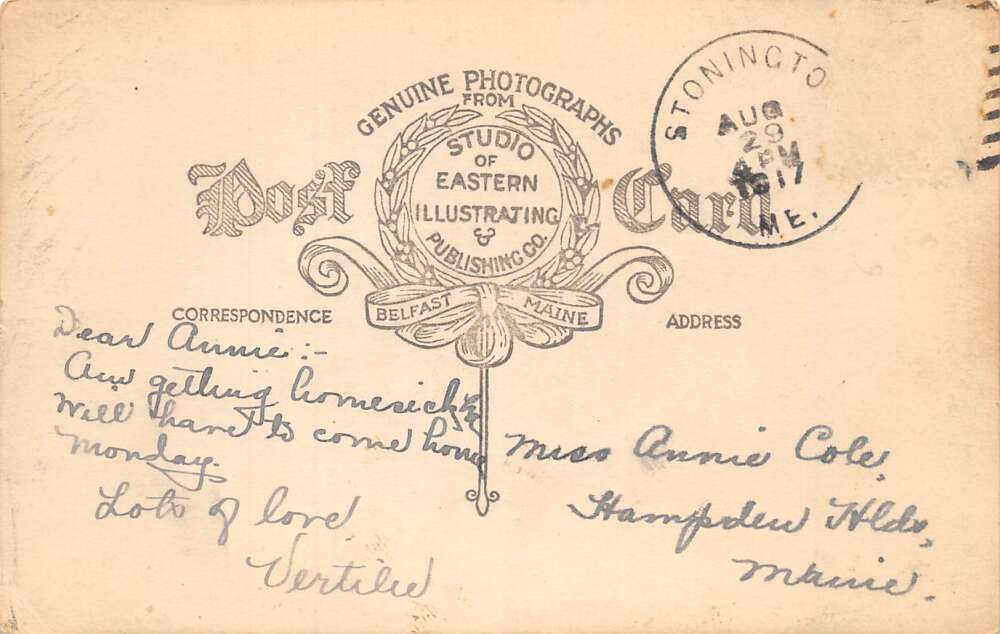 GENUINE PHOTOGRAPHS
FROM
STUDIO
OF
EASTERN
ILLUSTRATING
&
PUBLISHING CO.
BELFAST MAINE
Post Card
STONINGTO
AUG
29
PM
1917
ME.
CORRESPONDENCE
ADDRESS
Dear Annie:-
Am getting homesick &
will have to come home
Monday.
Lots of love
Vertilee
Miss Annie Cole,
Hampden Hlds,
Maine.